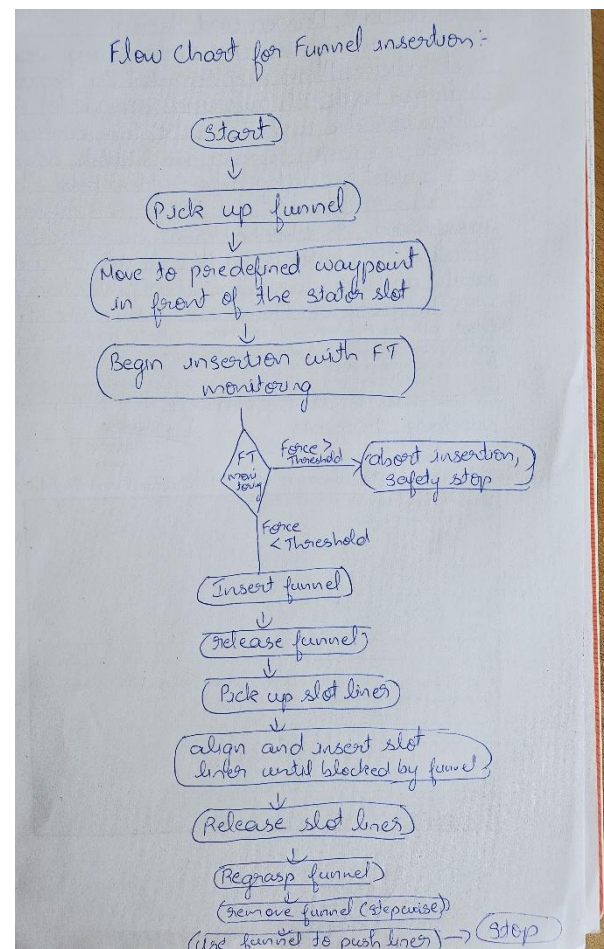 Flow Chart for Funnel insertion:-
Start
Pick up funnel
Move to predefined waypoint
in front of the stator slot
Begin insertion with FT
monitoring
FT
moni
toring
Force >
Threshold
abort insertion,
safety stop
Force
< Threshold
Insert funnel
release funnel
Pick up slot liner
align and insert slot
liner until blocked by funnel
Release slot liner
Regrasp funnel
remove funnel (stepwise)
Use funnel to push liner
Stop